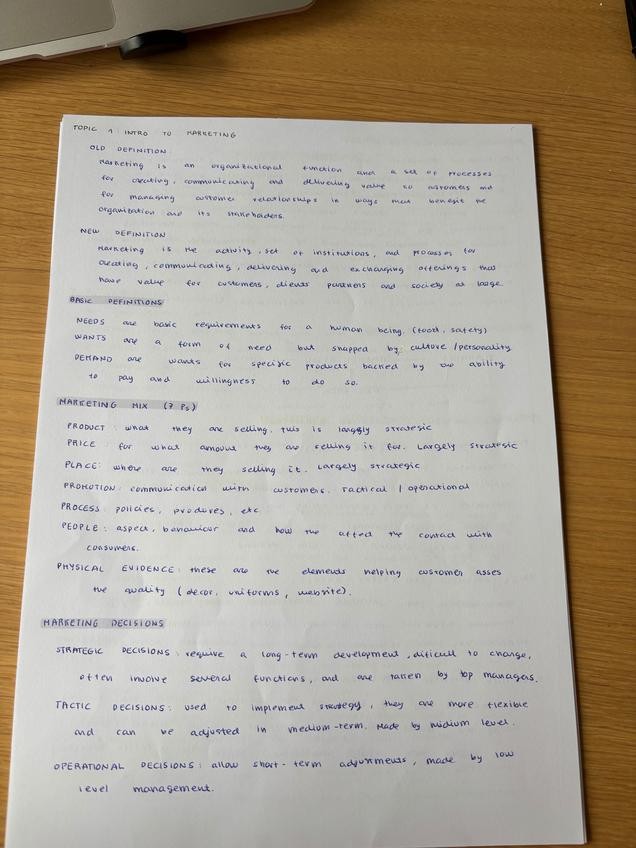 TOPIC 1 INTRO TO MARKETING
OLD DEFINITION
Marketing is an organizational function and a set of processes
for creating, communicating and delivering value to customers and
for managing customer relationships in ways that benefit the
organization and its stakeholders.
NEW DEFINITION
Marketing is the activity, set of institutions, and processes for
creating, communicating, delivering and exchanging offerings that
have value for customers, clients partners and society at large.
BASIC DEFINITIONS
NEEDS are basic requirements for a human being. (food, safety)
WANTS are a form of need but shapped by: culture/personality
DEMAND are wants for specific products backed by an ability
to pay and willingness to do so.
MARKETING MIX (7 Ps)
PRODUCT: what they are selling. this is largely strategic
PRICE: for what amount they are selling it for. Largely strategic
PLACE: where are they selling it. Largely strategic
PROMOTION: communication with customers. Tactical / operational
PROCESS: policies, produres, etc
PEOPLE: aspect, behaviour and how the affect the contact with
consumers.
PHYSICAL EVIDENCE: these are the elements helping customer asses
the quality (decor, uniforms, website).
MARKETING DECISIONS
STRATEGIC DECISIONS: require a long-term development, dificult to change,
often involve several functions, and are taken by top managers.
TACTIC DECISIONS: used to implement strategy, they are more flexible
and can be adjusted in medium-term. Made by midium level.
OPERATIONAL DECISIONS: allow short-term adjusments, made by low
level management.